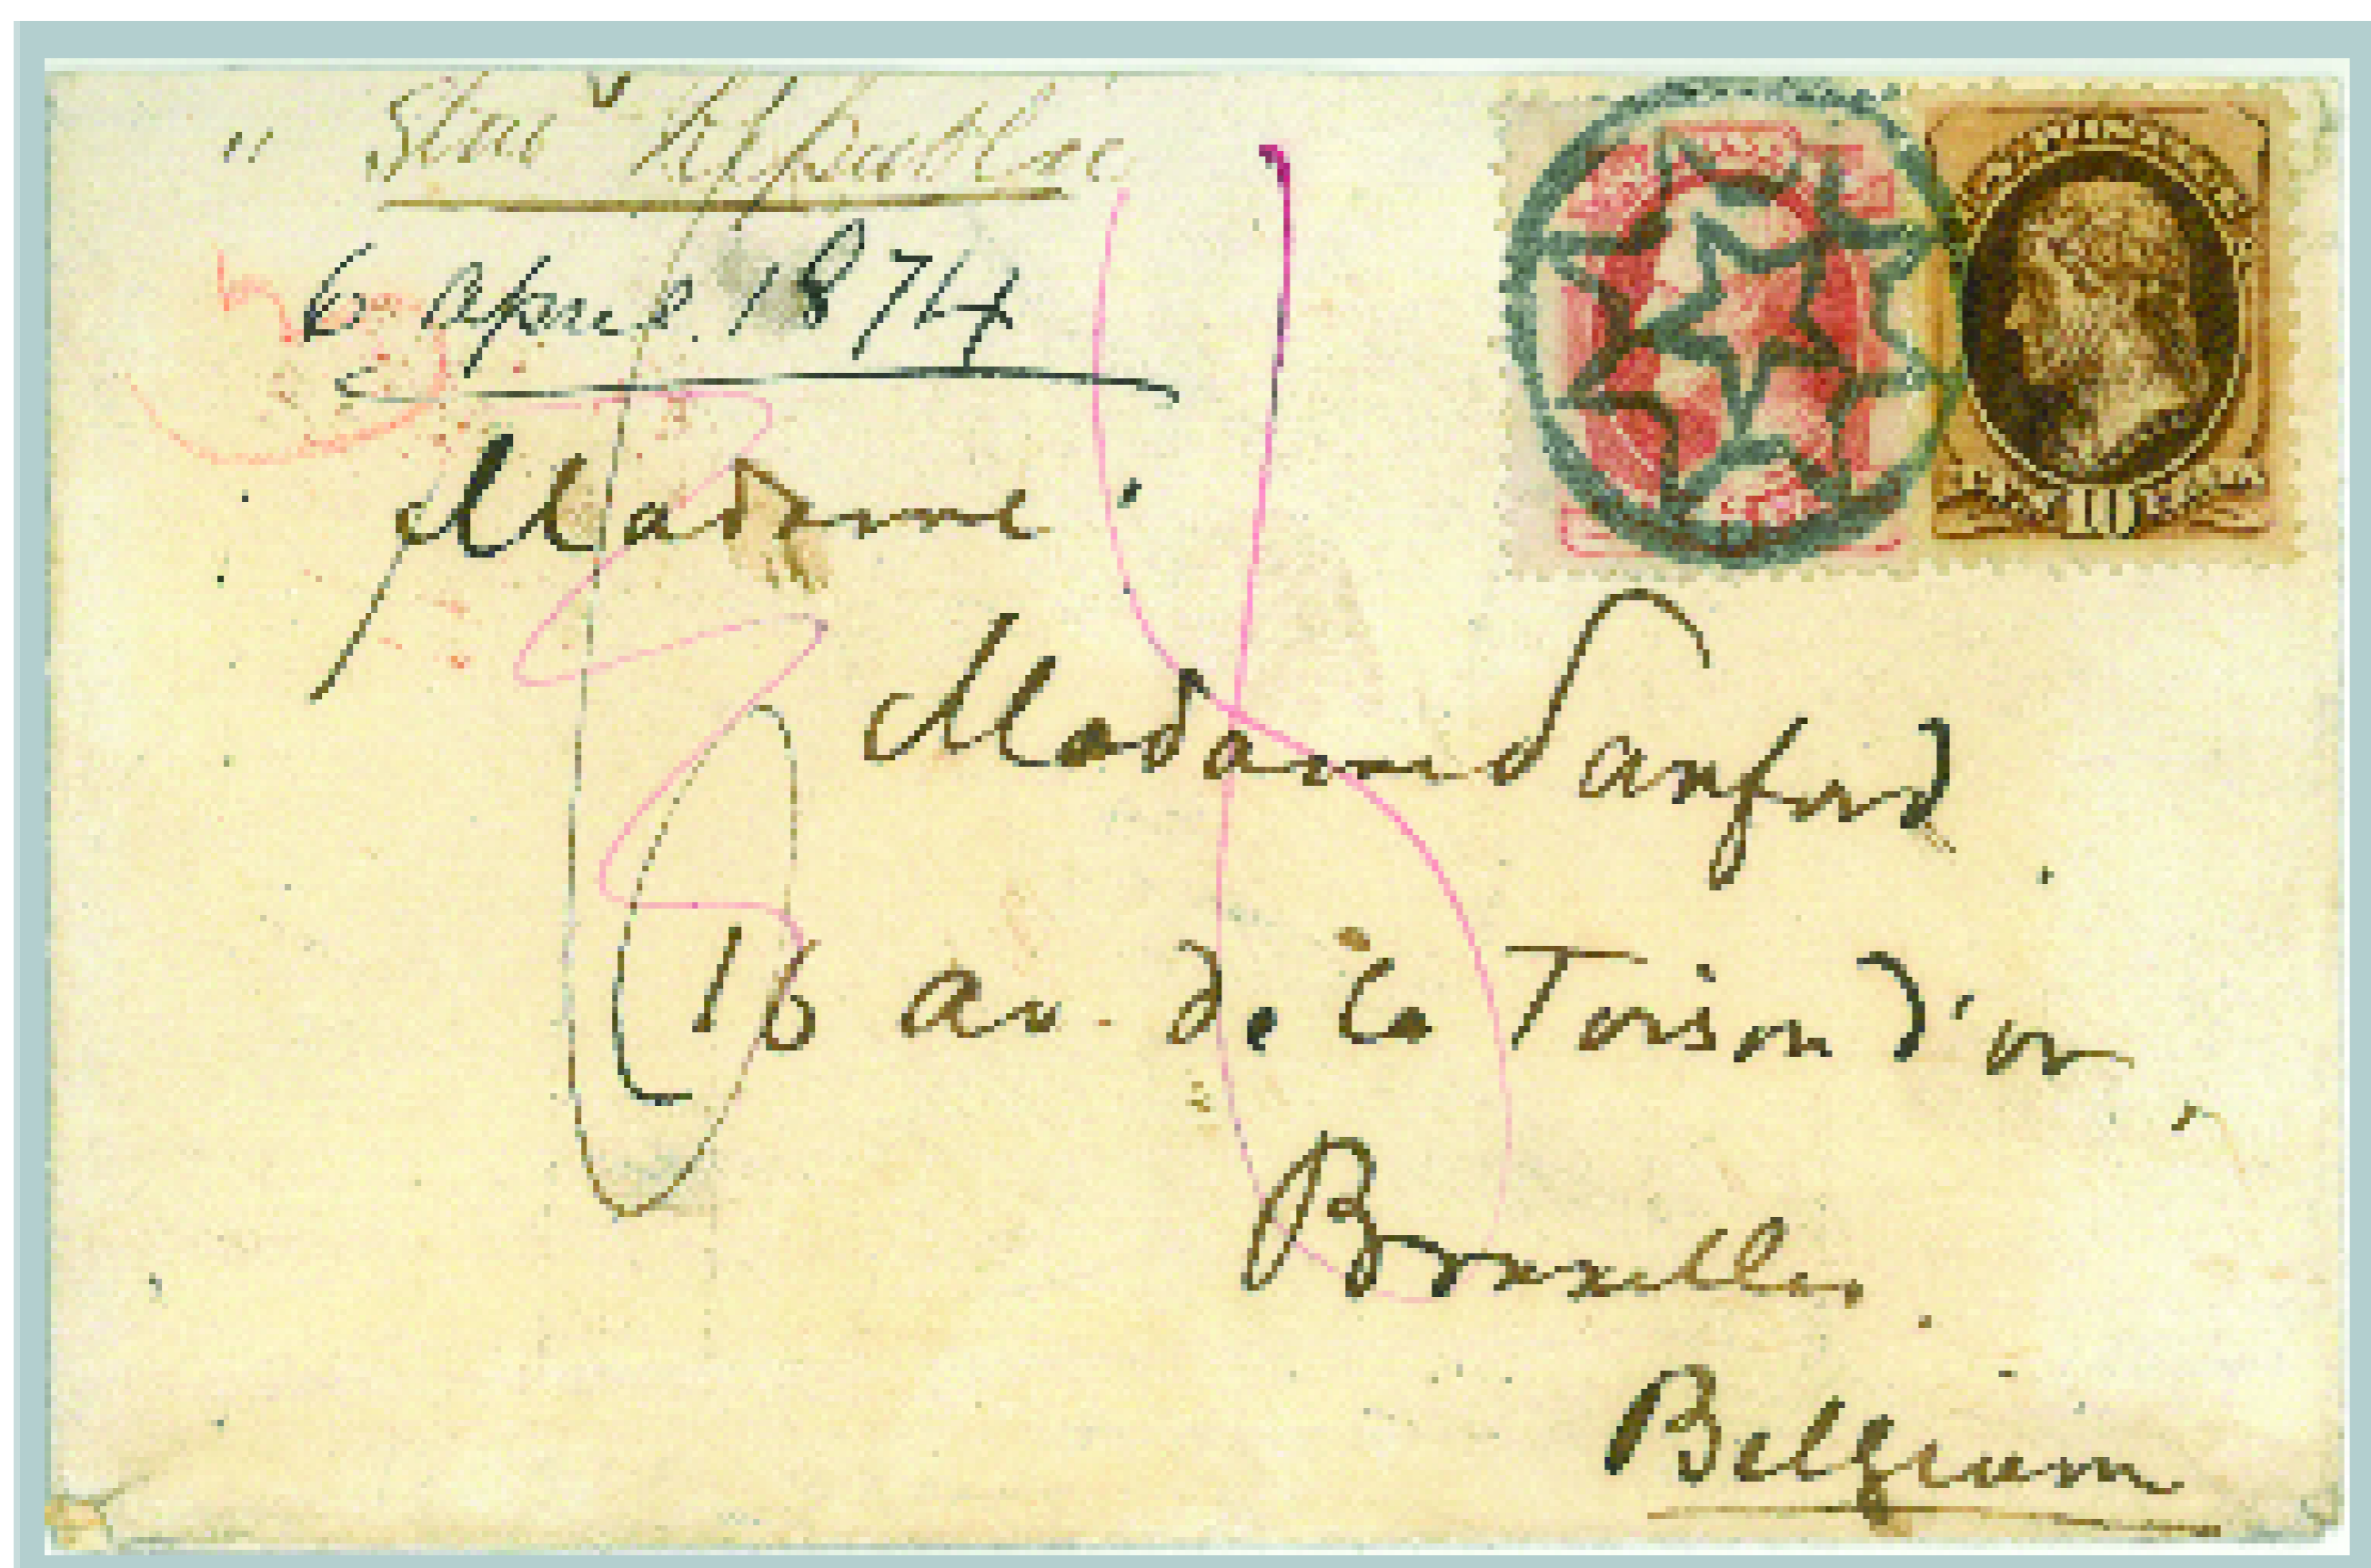 " Str Republic
6 april 1874
Madame
Madame Sanford
16 av. de la Toison d'or
Bruxelles.
Belgium
10